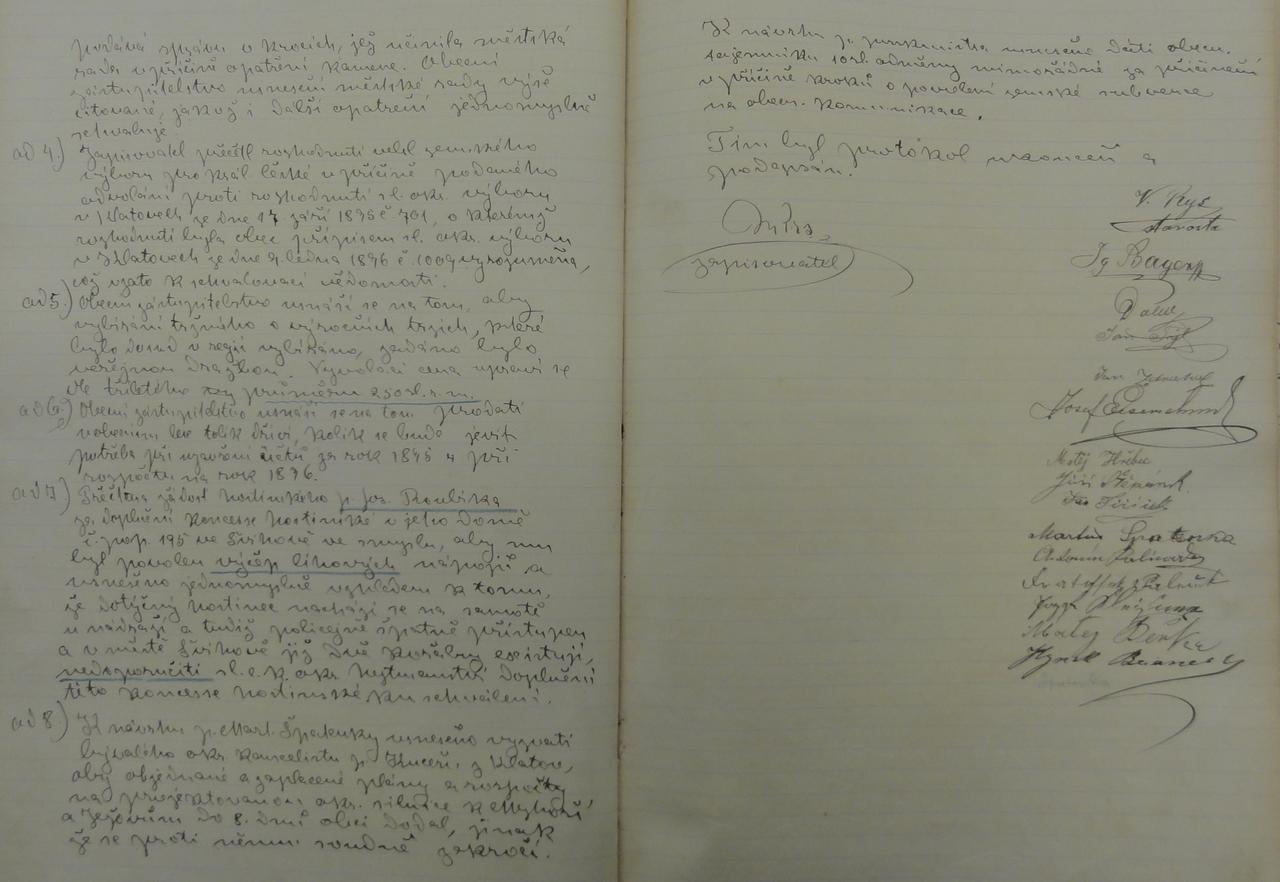 podává zprávu o krocích, jež učinila městská
rada v příčině opatření kamene. Obecní
zastupitelstvo usnesení městské rady výše
citované, jakož i další opatření jednomyslně
schvaluje.
ad 4.) Zapisovatel přečetl rozhodnutí vel. zemského
výboru pro král. české v příčině podaného
odvolání proti rozhodnutí sl. okr. výboru
v Klatovech ze dne 17. září 1895 č. 701, o kterémž
rozhodnutí byla obec přípisem sl. okr. výboru
v Klatovech ze dne 9. ledna 1896 č. 1009 vyrozuměna,
což vzato k schvalovací vědomosti.
ad 5.) Obecní zastupitelstvo usnáší se na tom, aby
vybírání tržného o výročních trzích, které
bylo dosud v regii vybíráno, zadáno bylo
veřejnou dražbou. Vyvolací cena upraví se
dle tříletého průměru 250 zl. r. m.
ad 6.) Obecní zastupitelstvo usnáší se na tom prodati
z obecních les tolik dříví, kolik se bude jevit
potřeba při uzavření účtů za rok 1895 a při
rozpočtu na rok 1896.
ad 7.) Přečtena žádost hostinského p. Jos. Roubíka
za doplnění koncesse hostinské v jeho domě
č. pop. 195 ve Švihově ve smyslu, aby mu
byl povolen výčep lihových nápojů a
usneseno jednomyslně vzhledem k tomu,
že dotyčný hostinec nachází se na samotě
u nádraží a tudíž policejně špatně přístupen
a v městě Švihově již dvě kořalny existují,
nedoporučiti sl. c. k. okr. hejtmanství doplnění
této koncesse hostinské ku schválení.
ad 8.) K návrhu p. Mart. Špatenky usneseno vyzvati
bývalého okr. kancelistu p. Kučeru z Klatov,
aby objednané a zaplacené plány a rozpočty
na projektovanou okr. silnici k
a Ježovům do 8. dnů obci dodal, jinak
že se proti němu soudně zakročí.
K návrhu p. usneseno dáti obec.
tajemníku 10 zl. odměny mimořádné za přičinění
v příčině kroků o povolení zemské subvence
na obec. komunikace.
Tím byl protokol ukončen a
podepsán.
zapisovatel
V. Rys
starosta
Ig. Bayer
Jan
Jan
Josef
Matěj
Jiří Štěpánek
Jan
Martin Špatenka
Antonín
Matěj Beňka
Hynek